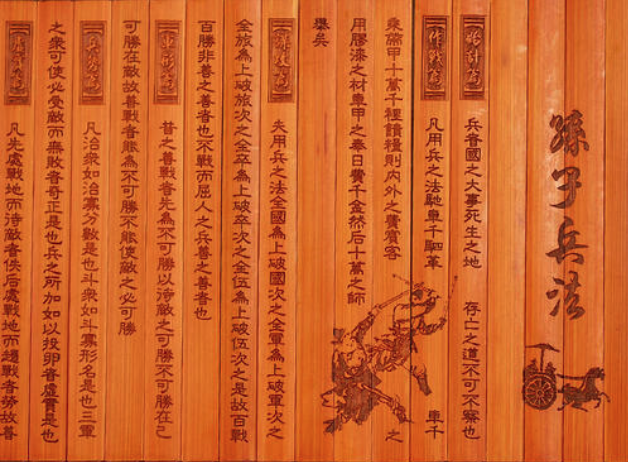 孫子兵法
始計篇 兵者國之大事死生之地 存亡之道不可不察也
作戰篇 凡用兵之法馳車千駟革 車千
乘帶甲十萬千裡饋糧則内外之費賓客 之
用膠漆之材車甲之奉日費千金然后十萬之師
舉矣
謀攻篇 夫用兵之法全國為上破國次之全軍為上破軍次之
全旅為上破旅次之全卒為上破卒次之全伍為上破伍次之是故百戰
百勝非善之善者也不戰而屈人之兵善之善者也
軍形篇 昔之善戰者先為不可勝以待敵之可勝不可勝在己
可勝在敵故善戰者能為不可勝不能使敵之必可勝
兵勢篇 凡治衆如治寡分數是也斗衆如斗寡形名是也三軍
之衆可使必受敵而無敗者奇正是也兵之所加如以投卵者虛實是也
虛實篇 凡先處戰地而待敵者佚后處戰地而趨戰者勞故善